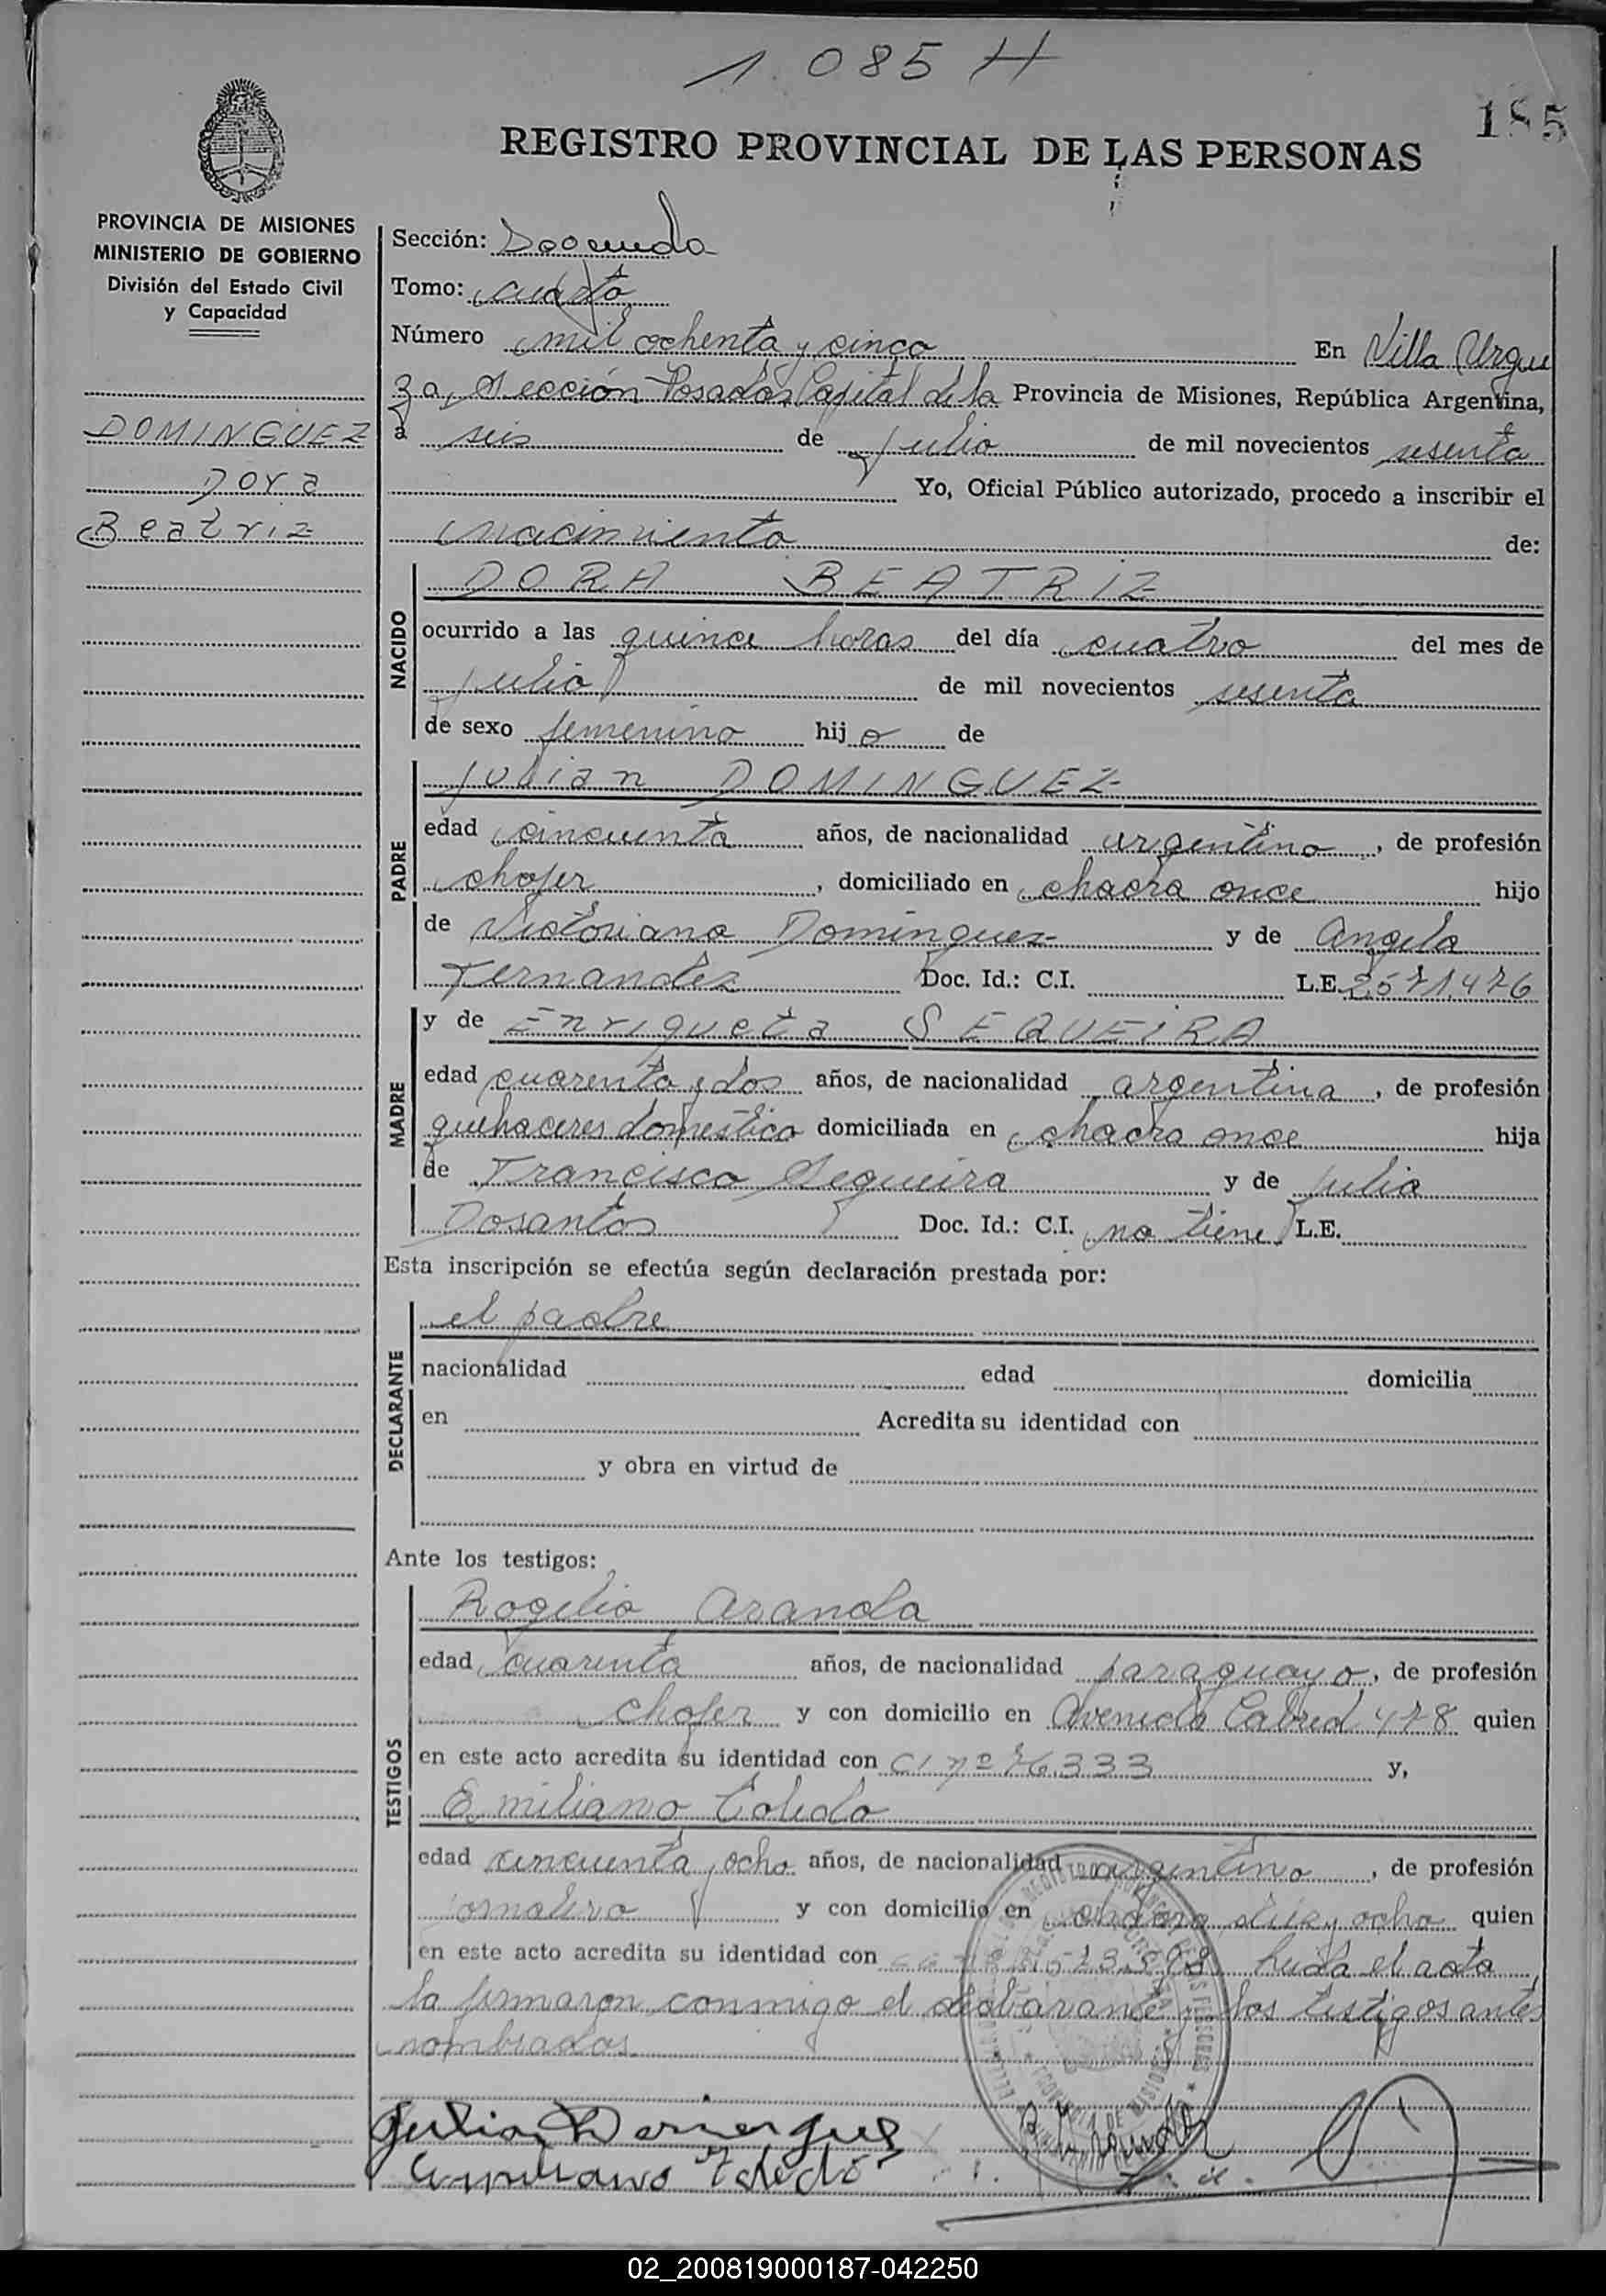 1085 H
185
REGISTRO PROVINCIAL DE LAS PERSONAS
PROVINCIA DE MISIONES
MINISTERIO DE GOBIERNO
División del Estado Civil
y Capacidad
DOMINGUEZ
Dora
Beatriz
Sección:
Tomo: cuarto
Número mil ochenta y cinco En Villa Urqui
za, Sección Posadas Capital de la Provincia de Misiones, República Argentina,
a seis de julio de mil novecientos sesenta
Yo, Oficial Público autorizado, procedo a inscribir el
nacimiento de:
NACIDO
DORA BEATRIZ
ocurrido a las quince horas del día cuatro del mes de
julio de mil novecientos sesenta
de sexo femenino hij a de
PADRE
Julian DOMINGUEZ
edad cincuenta años, de nacionalidad argentino, de profesión
chofer, domiciliado en chacra once hijo
de Victoriano Dominguez y de Angela
Fernandez Doc. Id.: C.I. L.E. 2571.476
MADRE
y de Enriqueta SEQUEIRA
edad cuarenta y dos años, de nacionalidad argentina, de profesión
quehaceres domestico domiciliada en chacra once hija
de Francisco Sequeira y de Julia
Dosantos Doc. Id.: C.I. no tiene L.E.
Esta inscripción se efectúa según declaración prestada por:
DECLARANTE
el padre
nacionalidad edad domicilia
en Acredita su identidad con
y obra en virtud de
Ante los testigos:
TESTIGOS
Rogelio Aranda
edad cuarenta años, de nacionalidad paraguayo, de profesión
chofer y con domicilio en Avenida Cabred 478 quien
en este acto acredita su identidad con CI nº 76.333 y,
Emiliano Toledo
edad cincuenta y ocho años, de nacionalidad argentino, de profesión
jornalero y con domicilio en chacra diez y ocho quien
en este acto acredita su identidad con leida el acta
la firmaron conmigo el declarante y los testigos antes
nombrados
Julian Dominguez
Emiliano Toledo
02_200819000187-042250